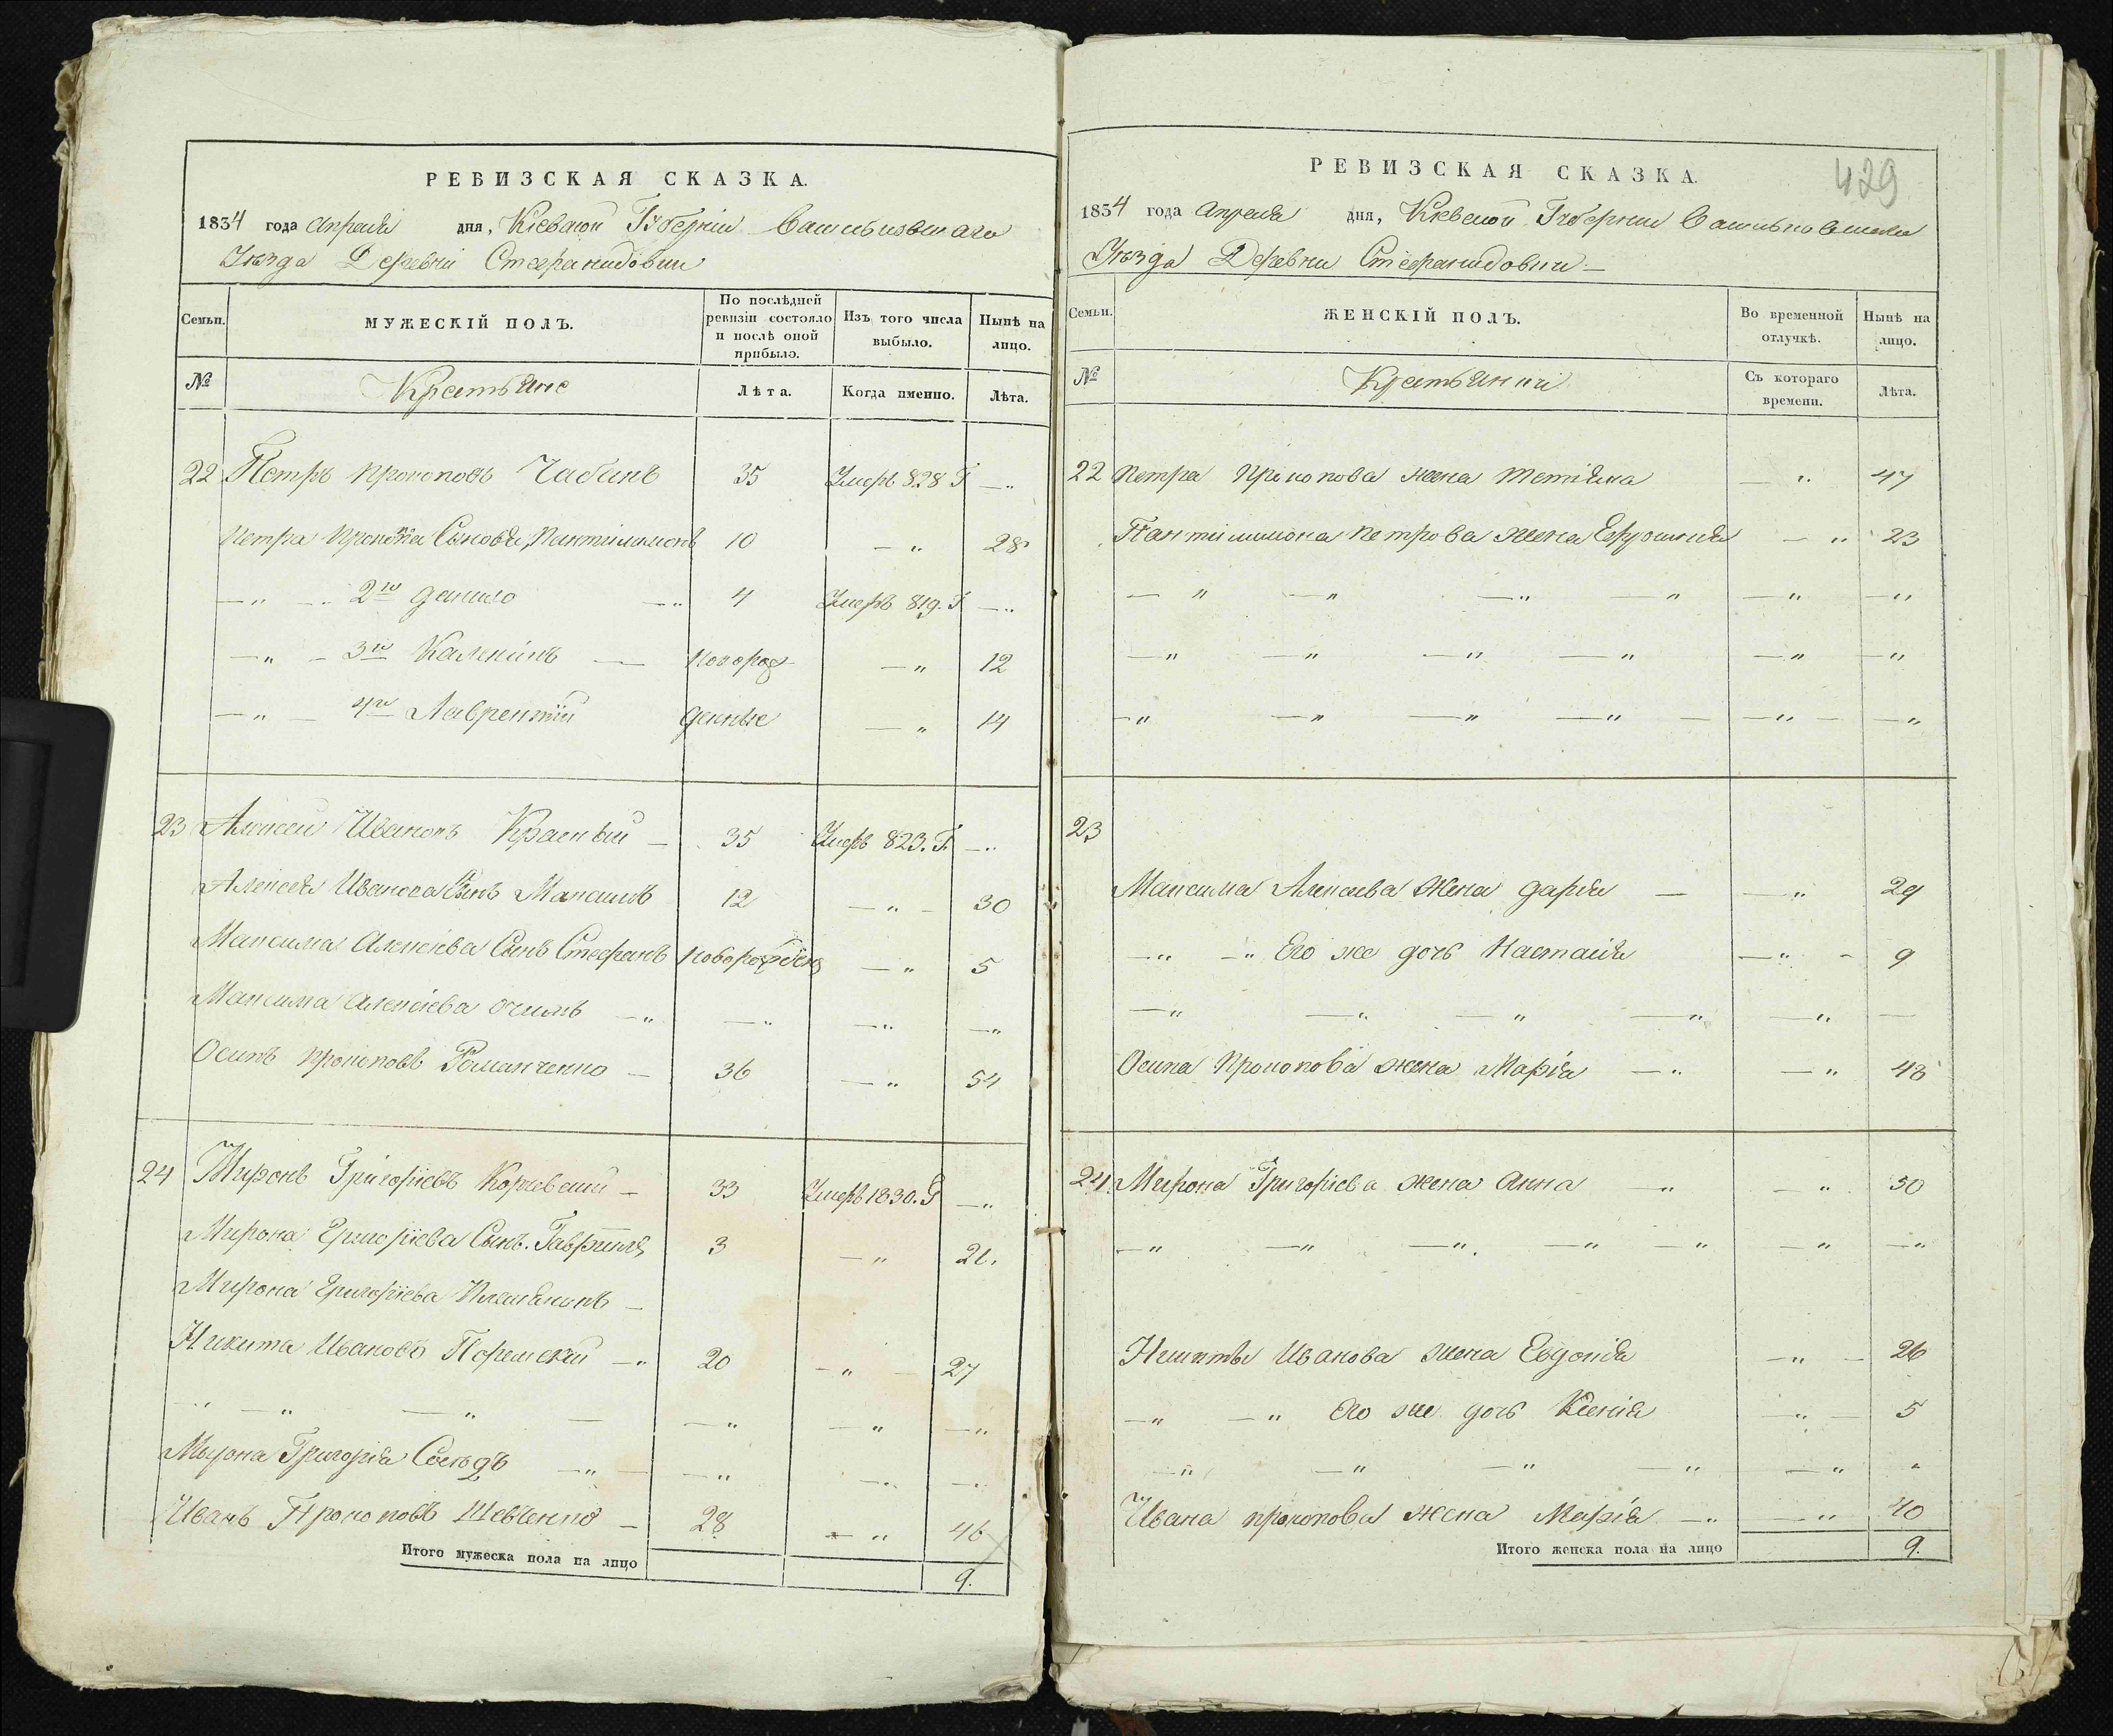 РЕВИЗСКАЯ СКАЗКА.
1834 года Апреля дня, Кіевской Губерніи Васильковскаго
Уѣзда Деревни Стефанидовки
Семьи.
МУЖЕСКІЙ ПОЛЪ.
По послѣдней ревизіи состояло и послѣ оной прибыло.
Изъ того числа выбыло.
Нынѣ на лицо.
№ Крестьяне Лѣта. Когда именно. Лѣта.
22 Петръ Прокоповъ Чабанъ 35 Умеръ 828 Г — "
Петра Прокопа Сыновья, Пантилимонъ 10 — " 28
— " — 2й Данило — " 4 Умеръ 819. Г — "
— " — 3й Каленикъ — Новорож — " 12
— " — 4й Лаврентій денные — " 14
23 Алексей Ивановъ Красный — 35 Умеръ 823. Г. — "
Алексея Иванова Сынъ Максимъ 12 — " — 30
Максима Алексіева Сынъ Стефанъ Новорожден — " 5
Максима Алексіева отчимъ — " — " — " — "
Осипъ Прокоповъ Романченко — 36 — " 54
24 Миронъ Григоріевъ Коржевский — 33 Умеръ 1830. Г — "
Мирона Григоріева Сынъ. Гаврила 3 — " 21.
Мирона Григоріева Племянникъ —
Никита Ивановъ — " 20 — " 27
" — " — " — — " — " — "
Мирона Григорія Соседъ — " — — " — " — "
Иванъ Прокоповъ Шевченко — 28 — " 46
Итого мужеска пола на лицо 9.
429
РЕВИЗСКАЯ СКАЗКА.
1834 года Апреля дня, Кіевской Губернии Васильковскаго
Уѣзда Деревни Стефанидовки —
Семьи.
ЖЕНСКІЙ ПОЛЪ.
Во временной отлучкѣ.
Нынѣ на лицо.
№ Крестьянки Съ котораго времени. Лѣта.
22 Петра Прокопова жена Тетіяна — " 47
Пантилимона Петрова жена Ефросинія — " 23
— " — " — " — " — " — "
— " — " — " — " — " — "
— " — " — " — " — — " — — "
23
Максима Алексіева жена Дарія — — " 29
— " — " Его же дочь Настасія — " — 9
— " — " — " — " — " —
Осипа Прокопова жена Марія — " — " 43
24. Мирона Григоріева жена Анна — " — " 50
— " — " — " — " — " — " — "
Никиты Иванова жена Евдокія — " — 26
— " — " Его же дочь Ксенія — " — 5
— " — " — " — " — " "
Ивана Прокопова жена Марія — " — " 40
Итого женска пола на лицо 9.